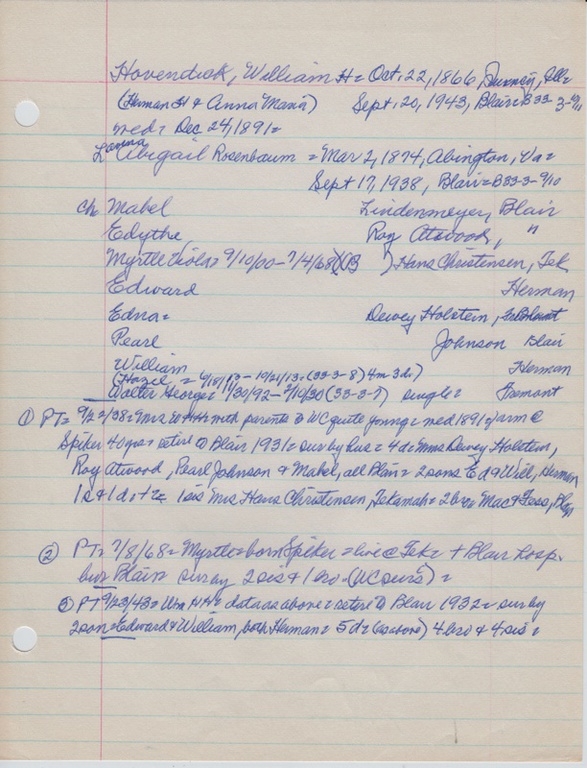 Hovendick, William H= Oct. 22, 1866, Ill=
(Herman H & Anna Maria) Sept. 20, 1943, Blair=B33-3-9/11
med= Dec 24, 1891=
Lavina Abigail Rosenbaum = Mar 2, 1874, Abington, Va=
Sept 17, 1938, Blair=B33-3-9/10
ch Mabel Lindenmeyer, Blair
Edythe Roy Atwood, "
Myrtle Viola= 9/10/00-7/4/68 (B ) Hans Christensen, Tek
Edward Herman
Edna= Dewey Holstein, Fremont
Pearl Johnson Blair
William Herman
(Hazel = - 10/21/13= (33-3-8) 4m 3d)
Walter George= - (33-3-7) single= Fremont
① PT= 9/22/38= Mrs with parents to WC quite young= med 1891= farm @
Spiker 40yrs= retire to Blair 1931= sur by hus= 4d= Mmes Dewey Holstein,
Roy Atwood, Pearl Johnson & Mabel, all Blair= 2 sons Ed & Will, Herman
1s & 1d 1 sis Mrs Hans Christensen, Tekamah= 2 bro= Mac &
② PT= 7/8/68= Myrtle= born Spiker = live @ Tek= + Blair hosp.
bur Blair sur by 2 sis & 1 bro= (WC ours) =
③ PT 9/23/43= Wm HH= data as above= retire to Blair 1932= sur by
2 son= Edward & William, both Herman= 5d= (as above) 4 bro & 4 sis=